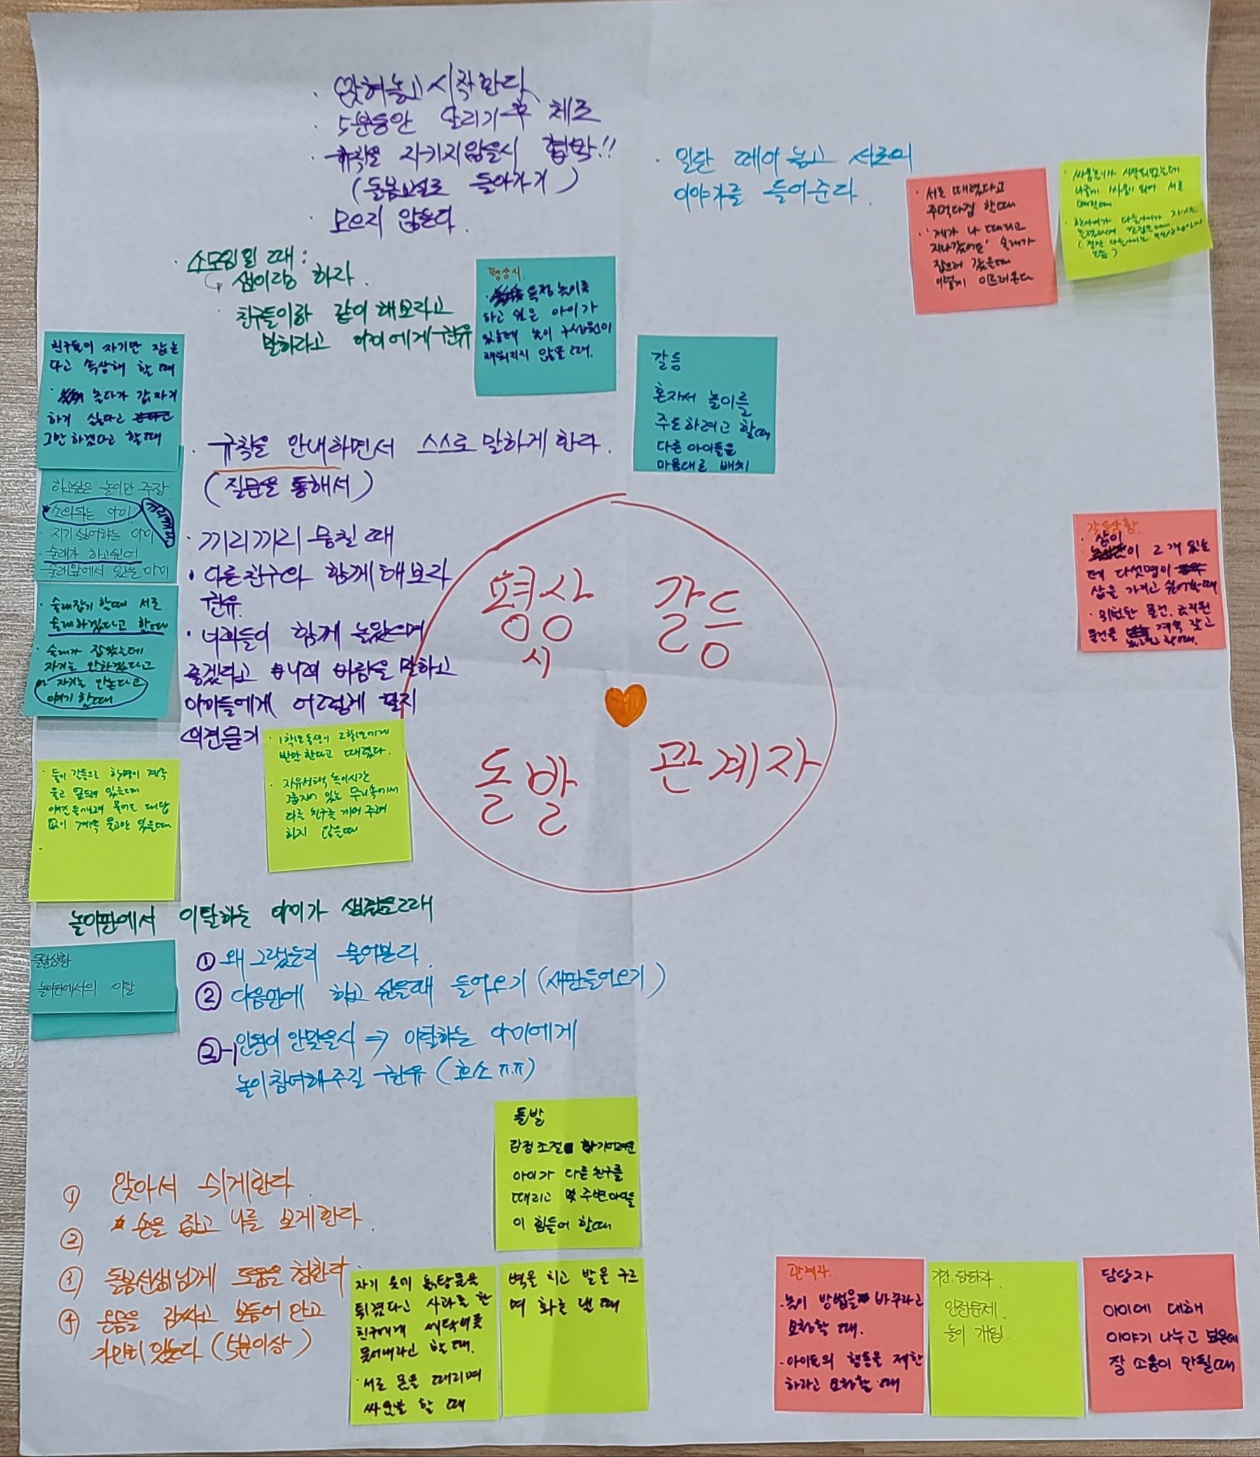 · 앉혀놓고 시작한다
· 5분동안 달리기 후 체조
· 규칙을 지키지않을시 협박!!
(돌봄교실로 돌아가기)
· 모으지 않는다.
· 일단 떼어 놓고 서로의
이야기를 들어준다.
· 서로 때렸다고
주먹다짐 할때
· "쟤가 나 때리고
지나갔어요" 술래가
잡으러 갔을때
이렇게 이르러온다
· 소모임일 때:
쌤이랑 하라
· 친구들이랑 같이 해보라고
말하라고 아이에게 권유
평상시.
특정 놀이를
하고 싶은 아이가
있는데 놀이 구성원이
채워지지 않을 때.
갈등
혼자서 놀이를
주도하려고 할때
다른 아이들을
마음대로 배치
친구들이 자기만 잡는
다고 속상해 할 때
· 놀다가 갑자기
하기 싫다고
그만하겠다고 할때
하고싶은 놀이만 주장
· 소외되는 아이
끼리끼리
· 지기 싫어하는 아이
· 술래가 하고싶어
술래앞에서 있는 아이
· 술래잡기 할때 서로
술래하겠다고 할때
· 술래가 잡혔는데
자기는 안하겠다고
자기는 안한다고
얘기 할때
· 규칙을 안내하면서 스스로 말하게 한다.
(질문을 통해서)
· 끼리끼리 뭉칠 때
· 다른친구와 함께 해보라
권유.
· 너희들이 함께 놀았으면
좋겠다고 나의 바람을 말하고
아이들에게 어떻게 할지
의견묻기
평상시
갈등
돌발
관계자
갈등상황
· 삽이 2개 있는
데 다섯명이
삽을 가지고 싶어할때
· 위험한 물건, 초치원
물건을 계속 갖고
· 1학년 동생이 2학년에게
반말한다고 때렸다.
· 자유선택 놀이시간
그룹지어 있는 무리속에서
다른 친구를 끼어 주려
하지 않을때
· 놀이 갈등으로 한명이 계속
울고 엎드려 있을때
의견을 물어도 대답
없이 계속 울고만 있을때
놀이판에서 이탈하는 아이가 생겼을때
돌발상황
· 놀이판에서의 이탈
① 왜 그랬는지 물어본다.
② 다음판에 하고 싶을때 들어오기 (새판들어오기)
②-1 인원이 안맞을시 ⇒ 이탈하는 아이에게
놀이참여해주길 권유 (호소 ㅠ.ㅠ)
돌발
감정조절 하기어려운
아이가 다른 친구를
때리고 주변아이들
이 힘들어 할때
① 앉아서 쉬게한다
② 손을 잡고 나를 보게한다.
③ 돌봄선생님께 도움을 청한다
④ 온몸을 감싸고 보듬어 안고
가만히 있는다 (5분이상)
자기 옷에 흙탕물을
튀겼다고 사과를 한
친구에게 세탁비를
물어내라고 할 때.
· 서로 몸을 때리며
싸움을 할 때
벽을 치고 발을 구르
며 화를 낼 때
관계자.
· 놀이 방법을 바꾸라고
요청할 때.
· 아이들의 행동을 제한
하라고 요청할 때
기관 담당자
안전문제.
놀이 개입
담당자
아이에 대해
이야기 나누고 싶은데
잘 소통이 안될때